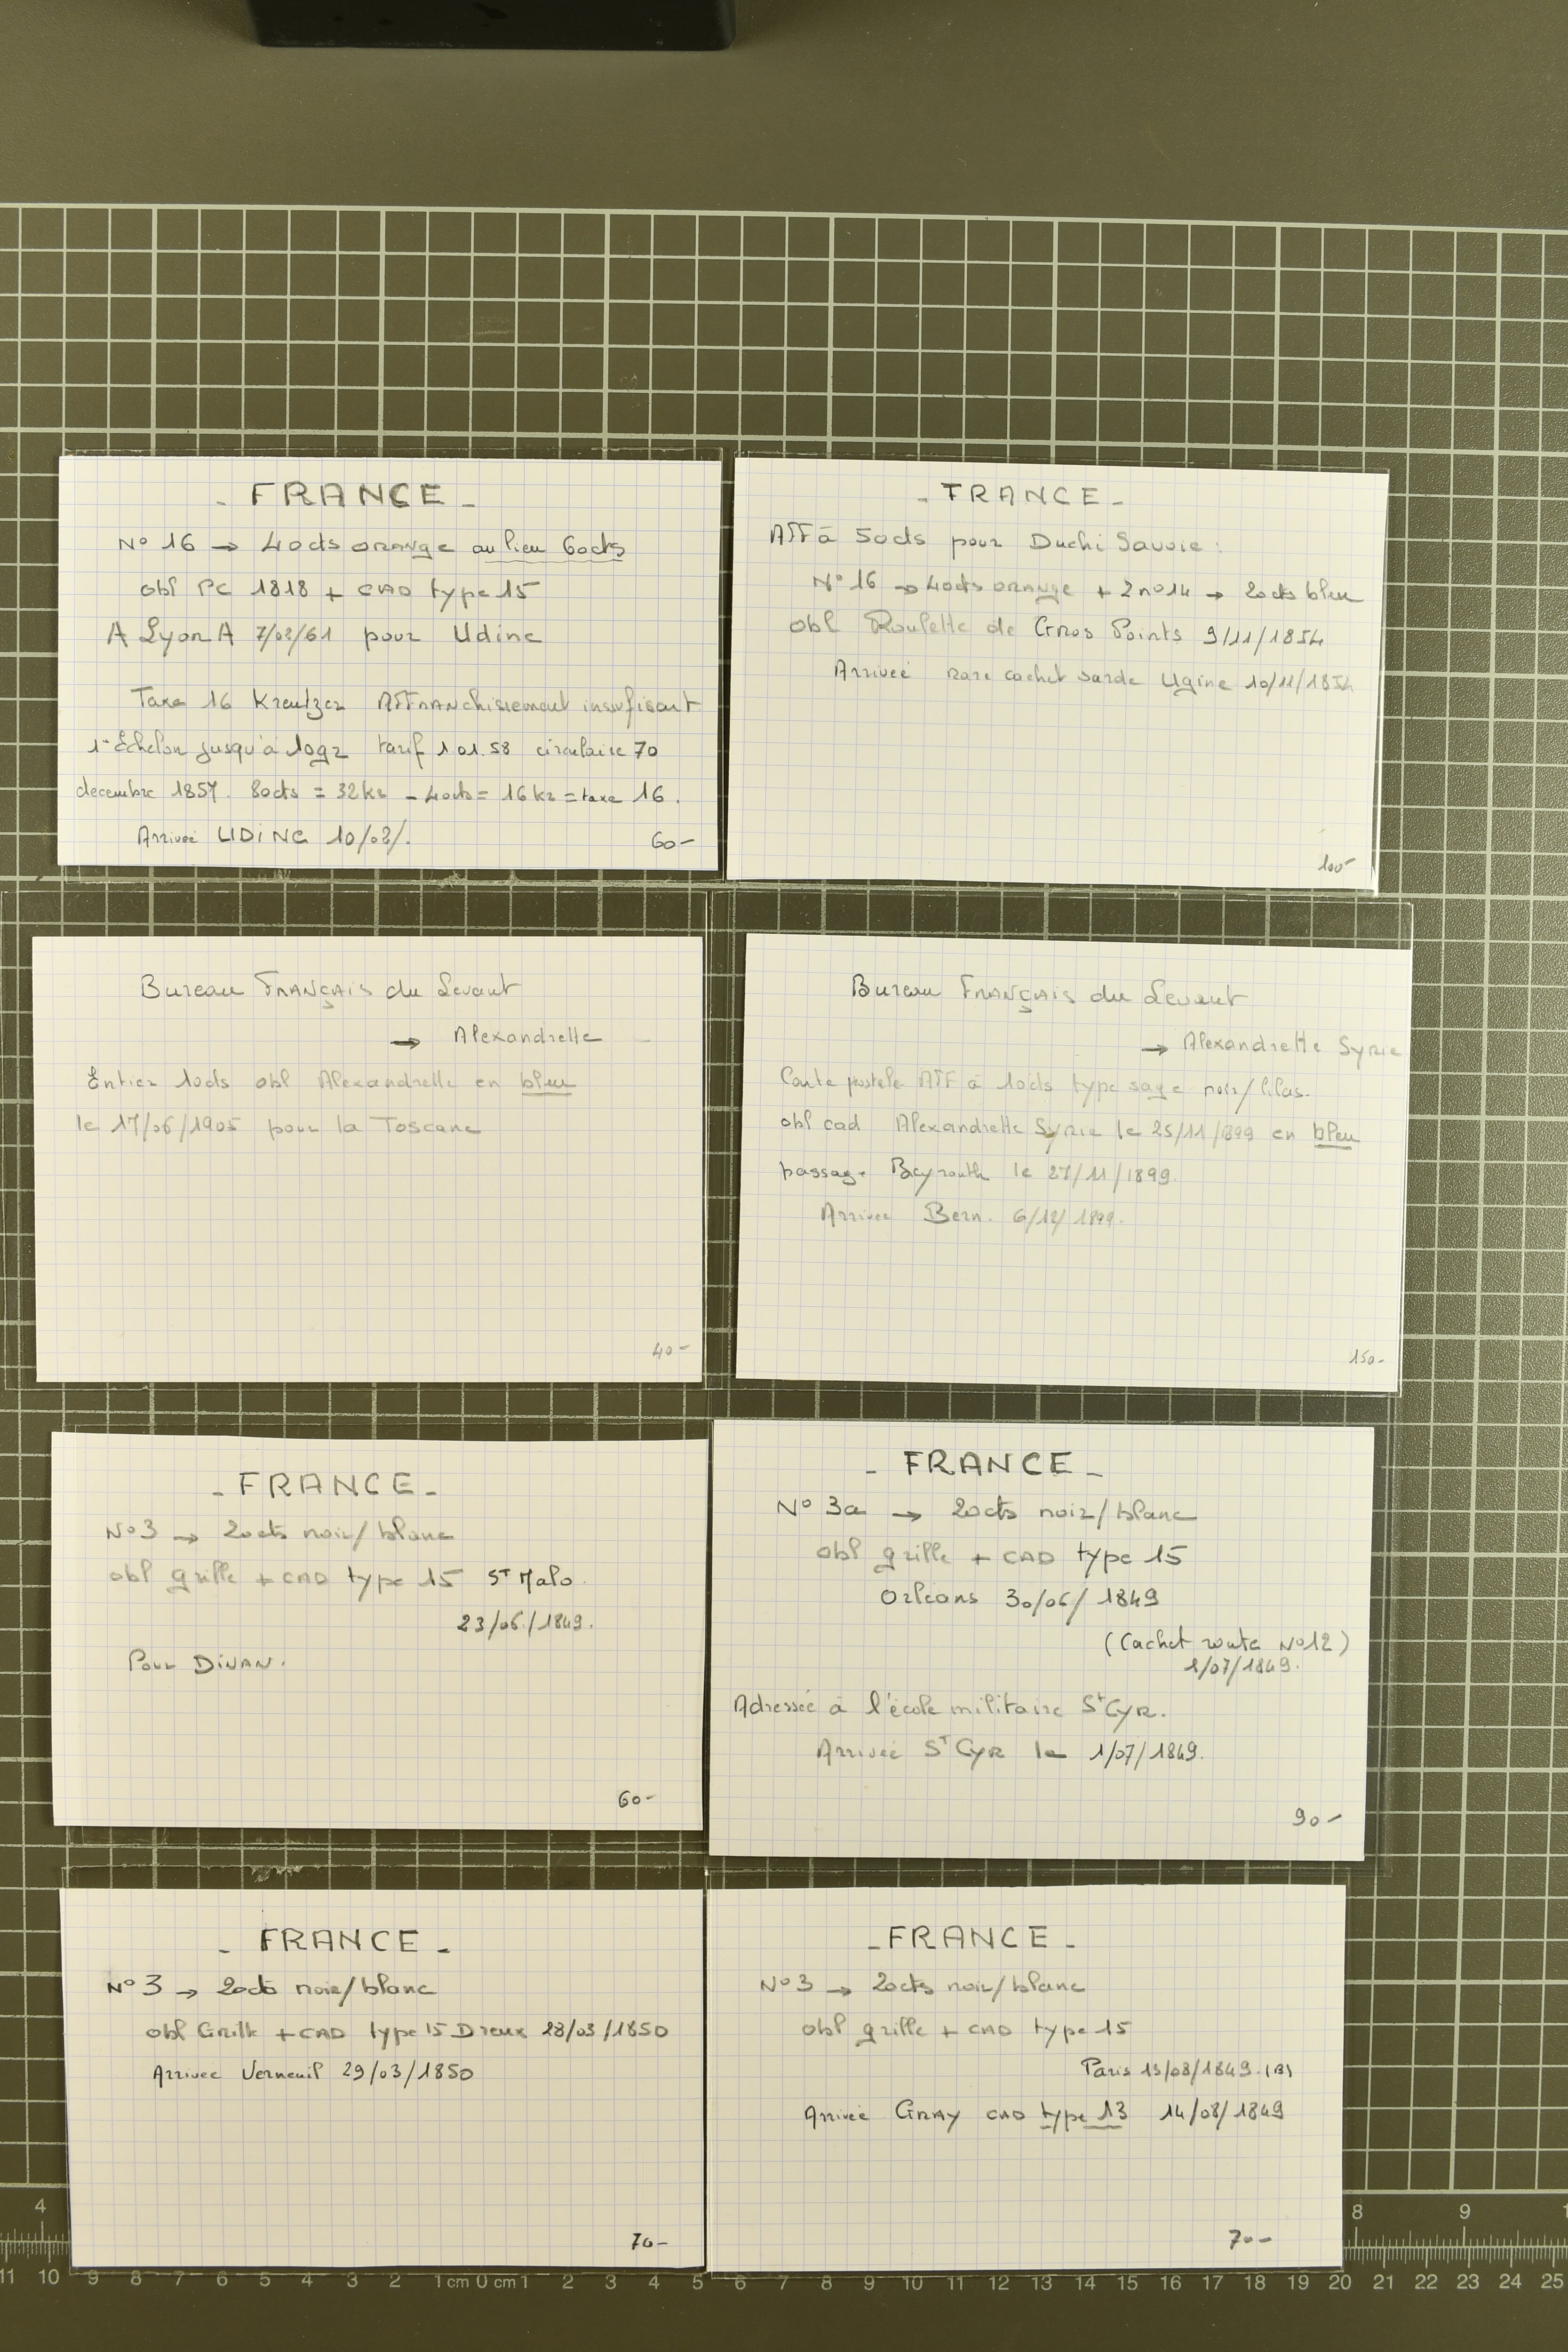 - FRANCE -
N° 16 → 40cts orange au lieu 60cts
obl PC 1818 + CAD type 15
A Lyon A 7/03/61 pour Udine
Taxe 16 Kreutzer Affranchissement insuffisant
1er Echelon jusqu'à 10gr tarif 1.01.58 circulaire 70
decembre 1857. 80cts = 32kr - 40cts = 16kr = taxe 16.
Arrivée UDINE 10/03/.
60-
- FRANCE -
Aff à 80cts pour Duché Savoie :
N° 16 → 40cts orange + 2 n°14 → 20cts bleu
obl Roulette de Gros Points 9/11/1854
Arrivée rare cachet sarde Ugine 10/11/1854
100-
Bureau Français du Levant
→ Alexandrette
Entier 10cts obl Alexandrette en bleu
le 17/06/1905 pour la Toscane
40-
Bureau Français du Levant
→ Alexandrette Syrie
Carte postale Aff à 10cts type sage noir/lilas.
obl cad Alexandrette Syrie le 25/11/1899 en bleu
passage Beyrouth le 27/11/1899.
Arrivée Bern. 6/12/1899.
150-
- FRANCE -
N° 3 → 20cts noir/blanc
obl grille + CAD type 15 St Malo.
23/06/1849.
Pour DINAN.
60-
- FRANCE -
N° 3a → 20cts noir/blanc
obl grille + CAD type 15
Orléans 30/06/1849
(Cachet route N°12)
1/07/1849.
Adressée à l'école militaire St Cyr.
Arrivée St Cyr le 1/07/1849.
90-
- FRANCE -
N° 3 → 20cts noir/blanc
obl Grille + CAD type 15 Dreux 28/03/1850
Arrivée Verneuil 29/03/1850
70-
- FRANCE -
N° 3 → 20cts noir/blanc
obl grille + CAD type 15
Paris 13/08/1849. (B)
Arrivée GRAY CAD type 13 14/08/1849
70-
4 8 9
11 10 9 8 7 6 5 4 3 2 1 cm 0 cm 1 2 3 4 5 6 7 8 9 10 11 12 13 14 15 16 17 18 19 20 21 22 23 24 25